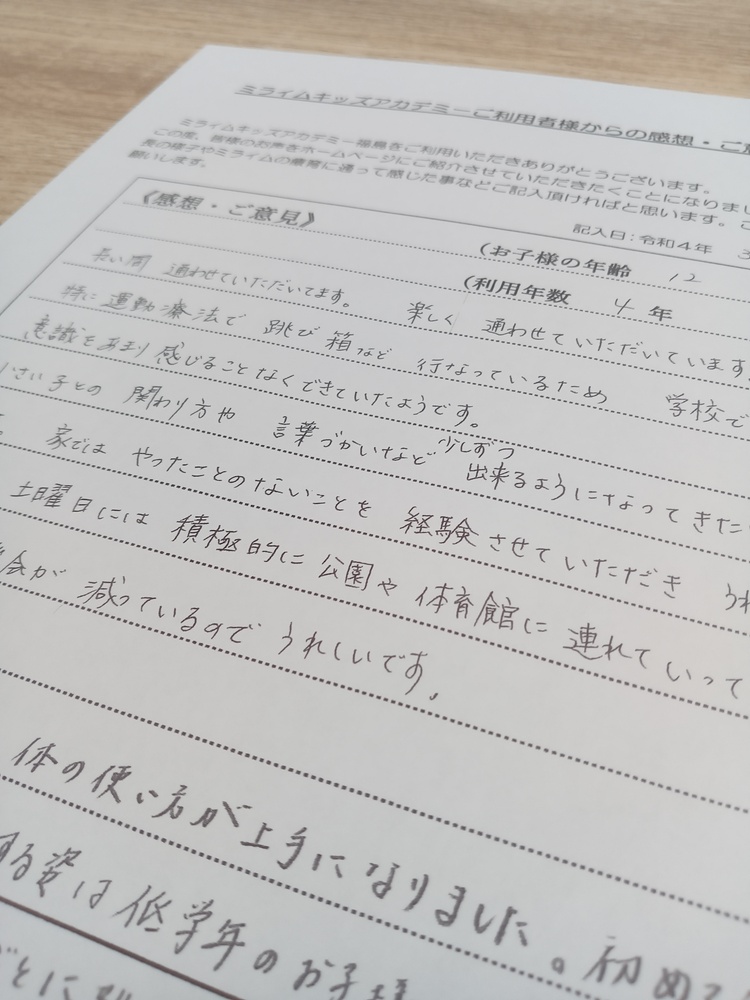 ミライムキッズアカデミーご利用者様からの感想・ご意
ミライムキッズアカデミー福島をご利用いただきありがとうございます。
この度、皆様のお声をホームページにご紹介させていただきたくことになりまし
長の様子やミライムの療育に通って感じた事などご記入頂ければと思います。ご
願いします。
記入日：令和４年 3
《感想・ご意見》
（お子様の年齢 12
（利用年数 4 年
長い間 通わせていただいてます。 楽しく 通わせていただいています。
特に 運動療法で 跳び箱など 行なっているため 学校で
意識をあまり感じることなくできていたようです。
小さい子との 関わり方や 言葉づかいなど 少しずつ 出来るようになってきた
。 家では やったことのないことを 経験させていただき うれ
土曜日には 積極的に 公園や 体育館に 連れていって
会が 減っているので うれしいです。
体の使い方が上手になりました。初め
する姿は低学年のお子様
ごとに